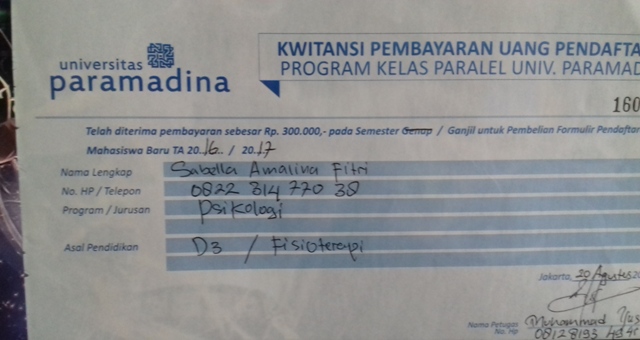 universitas
paramadina
KWITANSI PEMBAYARAN UANG PENDAFTA
PROGRAM KELAS PARALEL UNIV. PARAMAD
160
Telah diterima pembayaran sebesar Rp. 300.000,- pada Semester Genap / Ganjil untuk Pembelian Formulir Pendaftar
Mahasiswa Baru TA 2016 / 2017
Nama Lengkap Sabella Amalina Fitri
No. HP / Telepon 0822 814 770 38
Program / Jurusan Psikologi
Asal Pendidikan D3 / Fisioterapi
Jakarta, 20 Agustus 20
Nama Petugas Muhammad
No. Hp 0812 8193